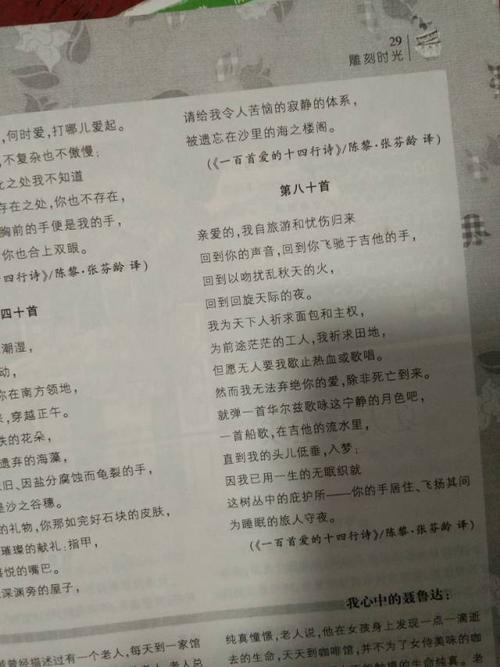 29
雕刻时光
,何时爱,打哪儿爱起。
不复杂也不傲慢;
此之处我不知道
存在之处,你也不存在,
胸前的手便是我的手,
你也合上双眼。
四行诗》/陈黎·张芬龄 译)
四十首
潮湿,
动,
你在南方领地,
来,穿越正午。
铁的花朵,
遗弃的海藻,
旧、因盐分腐蚀而龟裂的手,
是沙之谷穗。
的礼物,你那如完好石块的皮肤,
璀璨的献礼:指甲,
喜悦的嘴巴。
深渊旁的屋子,
请给我令人苦恼的寂静的体系,
被遗忘在沙里的海之楼阁。
(《一百首爱的十四行诗》/陈黎·张芬龄 译)
第八十首
亲爱的,我自旅游和忧伤归来
回到你的声音,回到你飞驰于吉他的手,
回到以吻扰乱秋天的火,
回到回旋天际的夜。
我为天下人祈求面包和主权,
为前途茫茫的工人,我祈求田地,
但愿无人要我歇止热血或歌唱。
然而我无法弃绝你的爱,除非死亡到来。
就弹一首华尔兹歌咏这宁静的月色吧,
一首船歌,在吉他的流水里,
直到我的头儿低垂,入梦:
因我已用一生的无眠织就
这树丛中的庇护所——你的手居住、飞扬其间
为睡眠的旅人守夜。
(《一百首爱的十四行诗》/陈黎·张芬龄 译)
我心中的聂鲁达:
曾经描述过有一个老人,每天到一家馆
纯真憧憬,老人说,他在女孩身上发现一点一滴逝
去的生命,天天到咖啡馆,并不为了女侍美味的咖